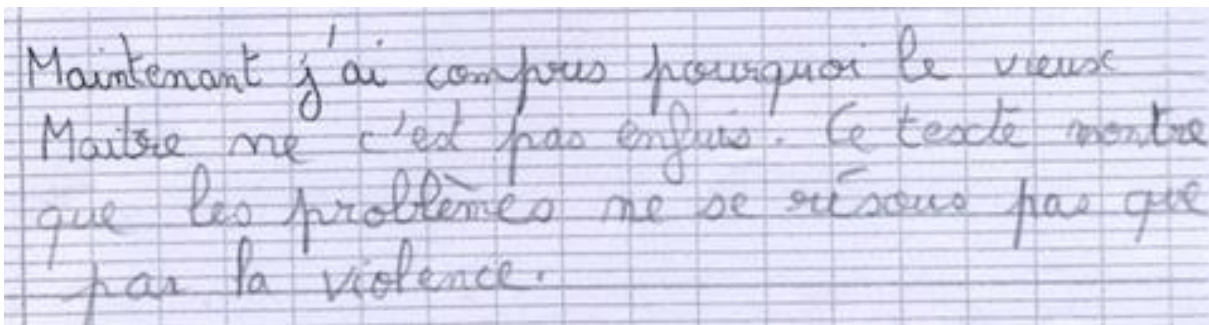 Maintenant j'ai compris pourquoi le vieux
Maitre ne c'est pas enfuis. Ce texte montre
que les problèmes ne se résous pas que
par la violence.